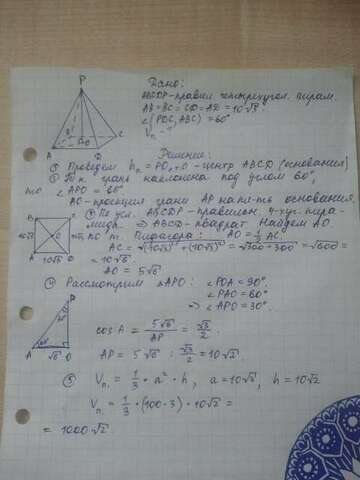 P
A
D
C
O
Дано:
ABCDP - правил. четырехугол. пирам.
AB=BC=CD=AD=10√3
∠(PDC, ABC) = 60°
Vп - ?
Решение:
① Проведем hп = PO, т.O - центр ABCD (основания)
② Т.к. грань наклонена под углом 60°,
то ∠APO = 60°.
AO - проекция грани AP на пл-ть основания.
③ По усл. ABCDP - правильн. 4-хуг. пира-
мида ⇒ ABCD - квадрат Найдем AO
по т. Пифагора: AO = 1/2 AC.
AC = √(10√3)² + (10√3)² = √300+300 = √600 =
= 10√6
AO = 5√6
A
10√3
④ Рассмотрим △APO: ∠POA = 90°
∠PAO = 60°
⇒ ∠APO = 30°.
P
A
O
cos A = 5√6/AP = √3/2
AP = 5√6 : √3/2 = 10√2.
⑤ Vп. = 1/3 · a² · h, a = 10√2, h = 10√2
Vп. = 1/3 · (100·3) · 10√2 =
= 1000√2.